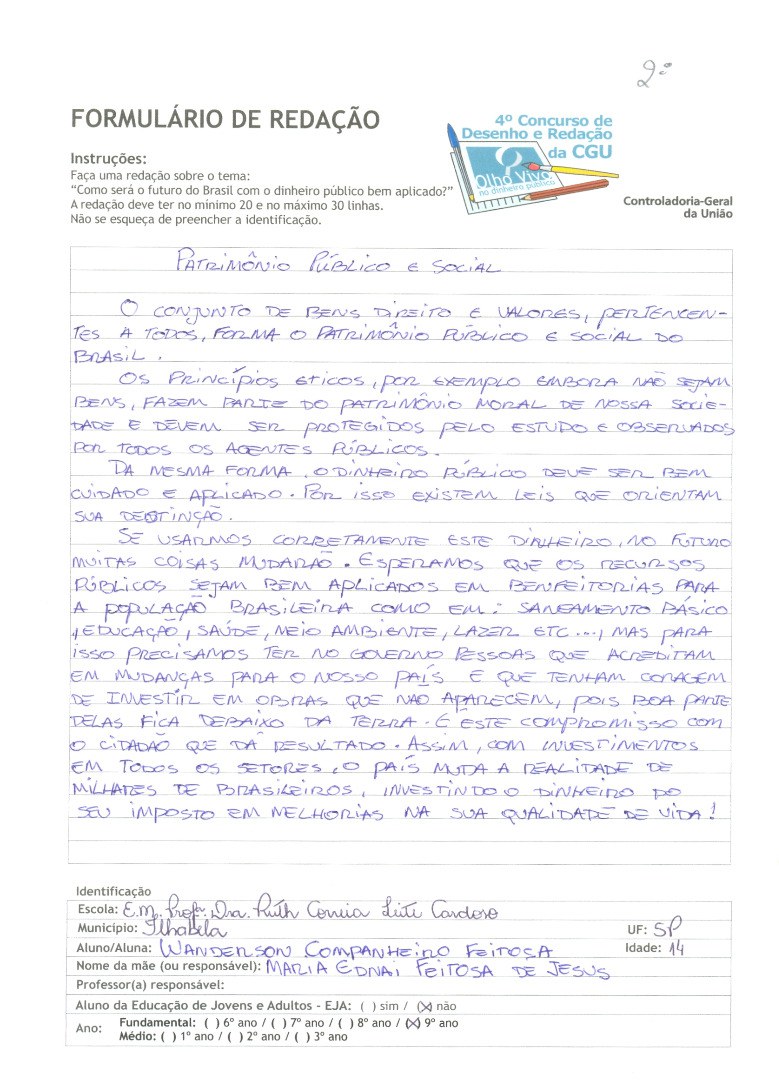 2º
FORMULÁRIO DE REDAÇÃO
4º Concurso de
Desenho e Redação
da CGU
Olho Vivo
no dinheiro público
Controladoria-Geral
da União
Instruções:
Faça uma redação sobre o tema:
“Como será o futuro do Brasil com o dinheiro público bem aplicado?”
A redação deve ter no mínimo 20 e no máximo 30 linhas.
Não se esqueça de preencher a identificação.
PATRIMÔNIO PÚBLICO E SOCIAL
O CONJUNTO DE BENS DIREITO E VALORES, PERTENCEN-
TES A TODOS, FORMA O PATRIMÔNIO PÚBLICO E SOCIAL DO
BRASIL.
OS PRINCÍPIOS ETICOS, POR EXEMPLO EMBORA NÃO SEJAM
BENS, FAZEM PARTE DO PATRIMÔNIO MORAL DE NOSSA SOCIE-
DADE E DEVEM SER PROTEGIDOS PELO ESTUDO E OBSERVADOS
POR TODOS OS AGENTES PÚBLICOS.
DA MESMA FORMA, O DINHEIRO PÚBLICO DEVE SER BEM
CUIDADO E APLICADO. POR ISSO EXISTEM LEIS QUE ORIENTAM
SUA DESTINÇÃO.
SE USARMOS CORRETAMENTE ESTE DINHEIRO, NO FUTURO
MUITAS COISAS MUDARÃO. ESPERAMOS QUE OS RECURSOS
PÚBLICOS SEJAM BEM APLICADOS EM BENFEITORIAS PARA
A POPULAÇÃO BRASILEIRA COMO EM: SANEAMENTO BÁSICO
, EDUCAÇÃO, SAÚDE, MEIO AMBIENTE, LAZER ETC..., MAS PARA
ISSO PRECISAMOS TER NO GOVERNO PESSOAS QUE ACREDITAM
EM MUDANÇAS PARA O NOSSO PAÍS E QUE TENHAM CORAGEM
DE INVESTIR EM OBRAS QUE NÃO APARECEM, POIS BOA PARTE
DELAS FICA DEBAIXO DA TERRA. É ESTE COMPROMISSO COM
O CIDADÃO QUE DÁ RESULTADO. ASSIM, COM INVESTIMENTOS
EM TODOS OS SETORES, O PAÍS MUDA A REALIDADE DE
MILHARES DE BRASILEIROS, INVESTINDO O DINHEIRO DO
SEU IMPOSTO EM MELHORIAS NA SUA QUALIDADE DE VIDA!
Identificação
Escola: E.M. Profª. Dra. Ruth Correia Leite Cardoso
Município: Ilhabela UF: SP
Aluno/Aluna: WANDERSON COMPANHEIRO FEITOSA Idade: 14
Nome da mãe (ou responsável): MARIA EDNAI FEITOSA DE JESUS
Professor(a) responsável:
Aluno da Educação de Jovens e Adultos - EJA: ( ) sim / (X) não
Ano: Fundamental: ( ) 6º ano / ( ) 7º ano / ( ) 8º ano / (X) 9º ano
Médio: ( ) 1º ano / ( ) 2º ano / ( ) 3º ano